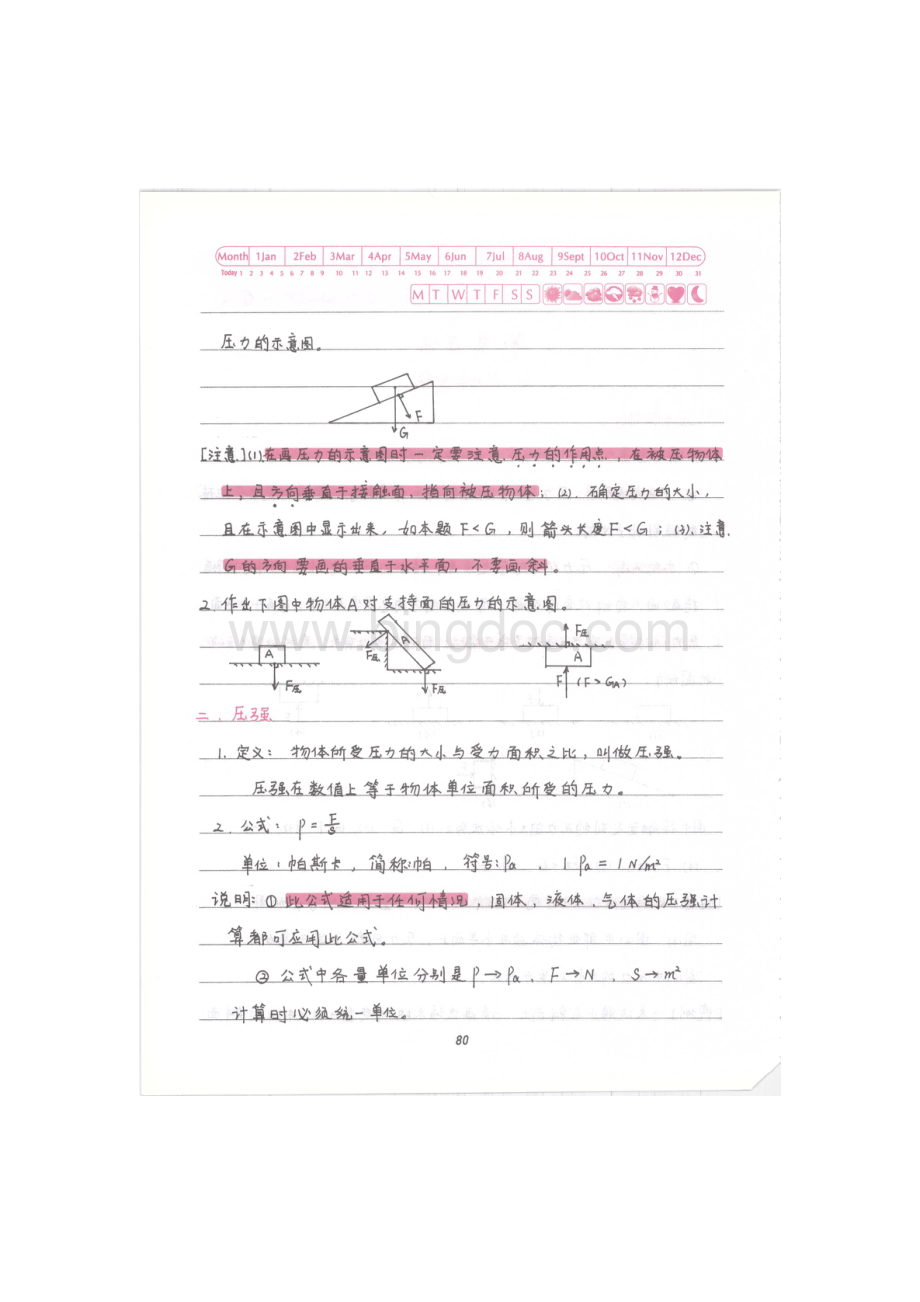 Month 1Jan 2Feb 3Mar 4Apr 5May 6Jun 7Jul 8Aug 9Sept 10Oct 11Nov 12Dec
Today 1 2 3 4 5 6 7 8 9 10 11 12 13 14 15 16 17 18 19 20 21 22 23 24 25 26 27 28 29 30 31
M T W T F S S
压力的示意图。
F
G
[注意](1).在画压力的示意图时一定要注意.压力的作用点，在被压物体
上，且方向垂直于接触面，指向被压物体；(2).确定压力的大小，
且在示意图中显示出来，如本题 F<G，则箭头长度F<G；(3).注意.
G的方向要画的垂直于水平面，不要画斜。
2.作出下图中物体A对支持面的压力的示意图。
www.bingdoc.com
A F压
A F压 F压
F压 A F (F>GA)
二．压强
1.定义：物体所受压力的大小与受力面积之比，叫做压强。
压强在数值上等于物体单位面积所受的压力。
2.公式：p=F/S
单位：帕斯卡，简称:帕．符号:Pa．1Pa=1N/m²
说明：①此公式适用于任何情况，固体，液体、气体的压强计
算都可应用此公式。
②公式中各量单位分别是p→Pa．F→N．S→m²
计算时必须统一单位。
80